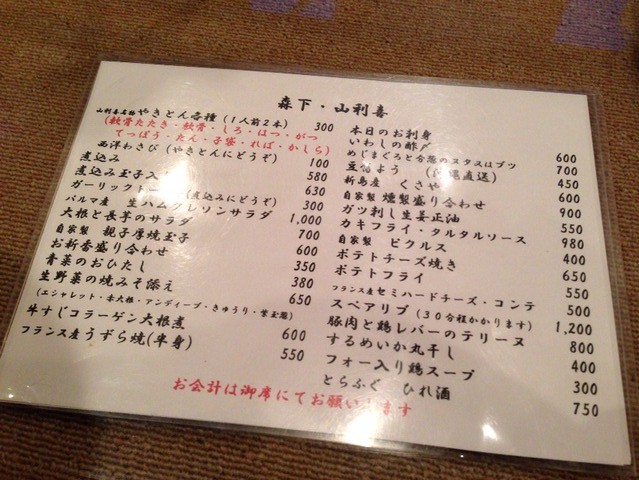 森下・山利喜
山利喜名物 やきとん各種(1人前2本) 300
(軟骨たたき・軟骨・しろ・はつ・がつ
てっぽう・たん・子袋・れば・かしら)
西洋わさび(やきとんにどうぞ) 100
煮込み 580
煮込み玉子入り 630
ガーリックトースト(煮込みにどうぞ) 300
パルマ産 生ハムクレソンサラダ 1,000
大根と長芋のサラダ 700
自家製 親子厚焼玉子 600
お新香盛り合わせ 350
青菜のおひたし 380
生野菜の焼みそ添え 650
(エシャレット・赤大根・アンディーブ・きゅうり・紫玉葱)
牛すじコラーゲン大根煮 600
フランス産うずら焼(半身) 550
本日のお刺身
いわしの酢〆 600
めじまぐろと合鴨のヌタスはブツ 700
豆腐よう(直送) 450
新島産 くさや 600
自家製 燻製盛り合わせ 900
ガツ刺し生姜正油 550
カキフライ・タルタルソース 980
自家製 ピクルス 400
ポテトチーズ焼き 650
ポテトフライ 550
フランス産セミハードチーズ・コンテ 500
スペアリブ(30分程かかります) 1,200
豚肉と鶏レバーのテリーヌ 800
するめいか丸干し 400
フォー入り鶏スープ 300
とらふぐ ひれ酒 750
お会計は御席にてお願いします